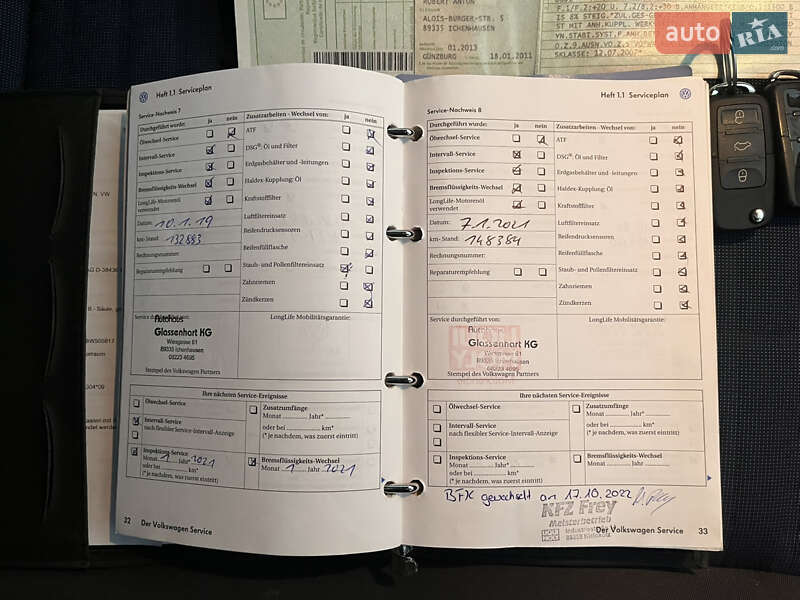 ROBERT ANTON
ALOIS-BURGER-STR. 5
89335 ICHENHAUSEN
01.2013
GÜNZBURG 18.01.2011
auto RIA .com
Heft 1.1 Serviceplan
Service-Nachweis 7
Durchgeführt wurde: ja nein
Zusatzarbeiten - Wechsel von: ja nein
Ölwechsel-Service
Intervall-Service
Inspektions-Service
Bremsflüssigkeits-Wechsel
LongLife-Motorenöl
verwendet
Datum: 10.1.19
km-Stand: 132883
Rechnungsnummer:
Reparaturempfehlung
ATF
DSG®: Öl und Filter
Erdgasbehälter und -leitungen
Haldex-Kupplung: Öl
Kraftstofffilter
Luftfiltereinsatz
Reifendrucksensoren
Reifenfüllflasche
Staub- und Pollenfiltereinsatz
Zahnriemen
Zündkerzen
Service durchgeführt von:
LongLife Mobilitätsgarantie:
Autohaus
Glassenhart KG
89335 Ichenhausen
08223 4095
Stempel des Volkswagen Partners
Ihre nächsten Service-Ereignisse
Ölwechsel-Service
Intervall-Service
nach flexibler Service-Intervall-Anzeige
Inspektions-Service
Monat 1 Jahr* 2021
oder bei km*
(* je nachdem, was zuerst eintritt)
Zusatzumfänge
Monat Jahr*
oder bei km*
(* je nachdem, was zuerst eintritt)
Bremsflüssigkeits-Wechsel
Monat 1 Jahr 2021
32 Der Volkswagen Service
Heft 1.1 Serviceplan
Service-Nachweis 8
Durchgeführt wurde: ja nein
Zusatzarbeiten - Wechsel von: ja nein
Ölwechsel-Service
Intervall-Service
Inspektions-Service
Bremsflüssigkeits-Wechsel
LongLife-Motorenöl
verwendet
Datum: 7.1.2021
km-Stand: 148384
Rechnungsnummer:
Reparaturempfehlung
ATF
DSG®: Öl und Filter
Erdgasbehälter und -leitungen
Haldex-Kupplung: Öl
Kraftstofffilter
Luftfiltereinsatz
Reifendrucksensoren
Reifenfüllflasche
Staub- und Pollenfiltereinsatz
Zahnriemen
Zündkerzen
Service durchgeführt von:
LongLife Mobilitätsgarantie:
Autohaus
Glassenhart KG
89335 Ichenhausen
08223 4095
Stempel des Volkswagen Partners
Ihre nächsten Service-Ereignisse
Ölwechsel-Service
Intervall-Service
nach flexibler Service-Intervall-Anzeige
Inspektions-Service
Monat Jahr*
oder bei km*
(* je nachdem, was zuerst eintritt)
Zusatzumfänge
Monat Jahr*
oder bei km*
(* je nachdem, was zuerst eintritt)
Bremsflüssigkeits-Wechsel
Monat Jahr
BFK gewechselt am 17.10.2022
KFZ Frey
Meisterbetrieb
Der Volkswagen Service 33